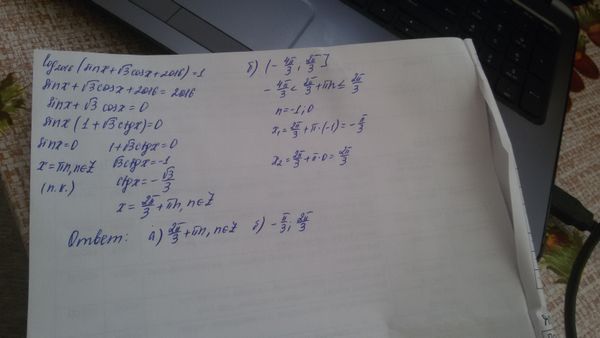 log₂₀₁₆(sinx+√3cosx+2016)=1
sinx+√3cosx+2016=2016
sinx+√3 cosx=0
sinx(1+√3ctgx)=0
sinx=0 1+√3ctgx=0
x=πn,n∈Z √3ctgx=-1
(п.к.) ctgx=-√3/3
x=2π/3+πn,n∈Z
б) (-4π/3; 2π/3]
-4π/3<2π/3+πn≤2π/3
n=-1;0
x₁=2π/3+π·(-1)=-π/3
x₂=2π/3+π·0=2π/3
Ответ: а) 2π/3+πn,n∈Z б) -π/3; 2π/3